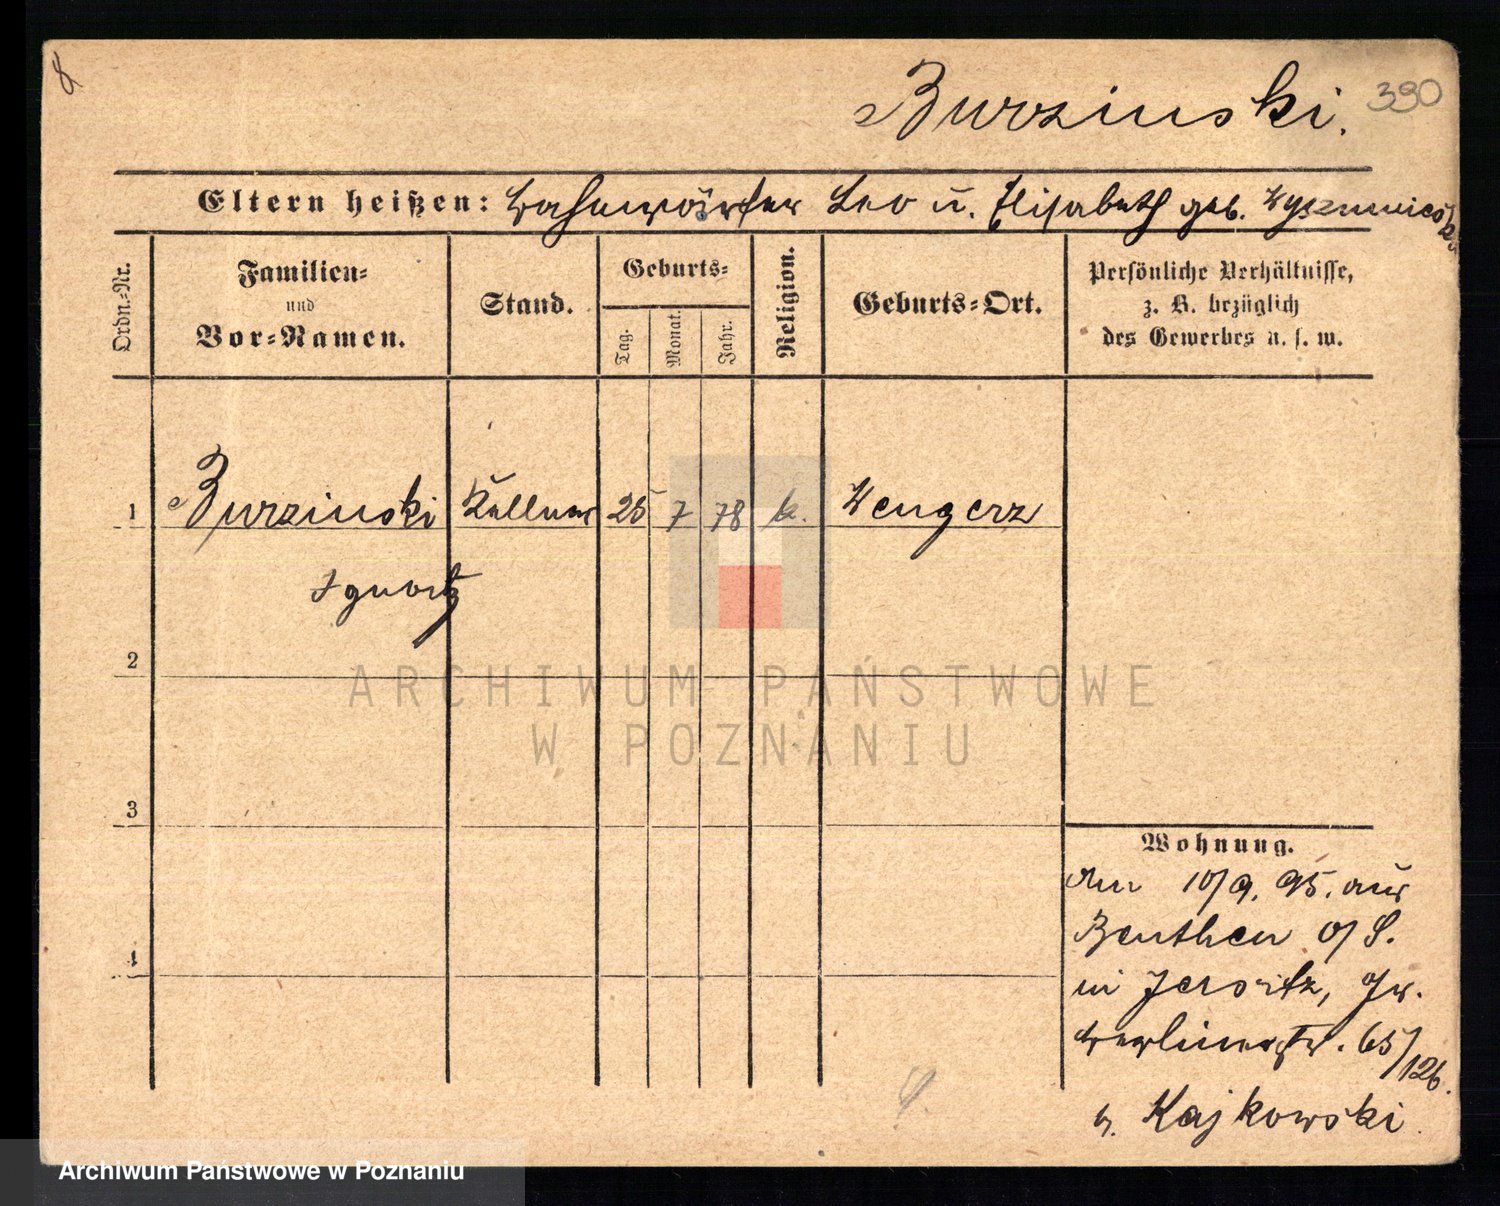 8
Burzinski. 390
Eltern heißen: Bahnwärter Leo u. Elisabeth geb.
Ordn.-Nr.
Familien-
und
Vor-Namen.
Stand.
Geburts-
Tag.
Monat.
Jahr.
Religion.
Geburts-Ort.
Persönliche Verhältnisse,
z. B. bezüglich
des Gewerbes u. s. w.
1 Burzinski Kellner 25 7 78 k. Wengerz
Ignatz
2
ARCHIWUM PAŃSTWOWE
W POZNANIU
3
Wohnung.
Am 10/9. 95. aus
Beuthen O/S.
in Jersitz, Gr.
Berlinerstr. 65/126.
b. Kajkowski.
4
Archiwum Państwowe w Poznaniu